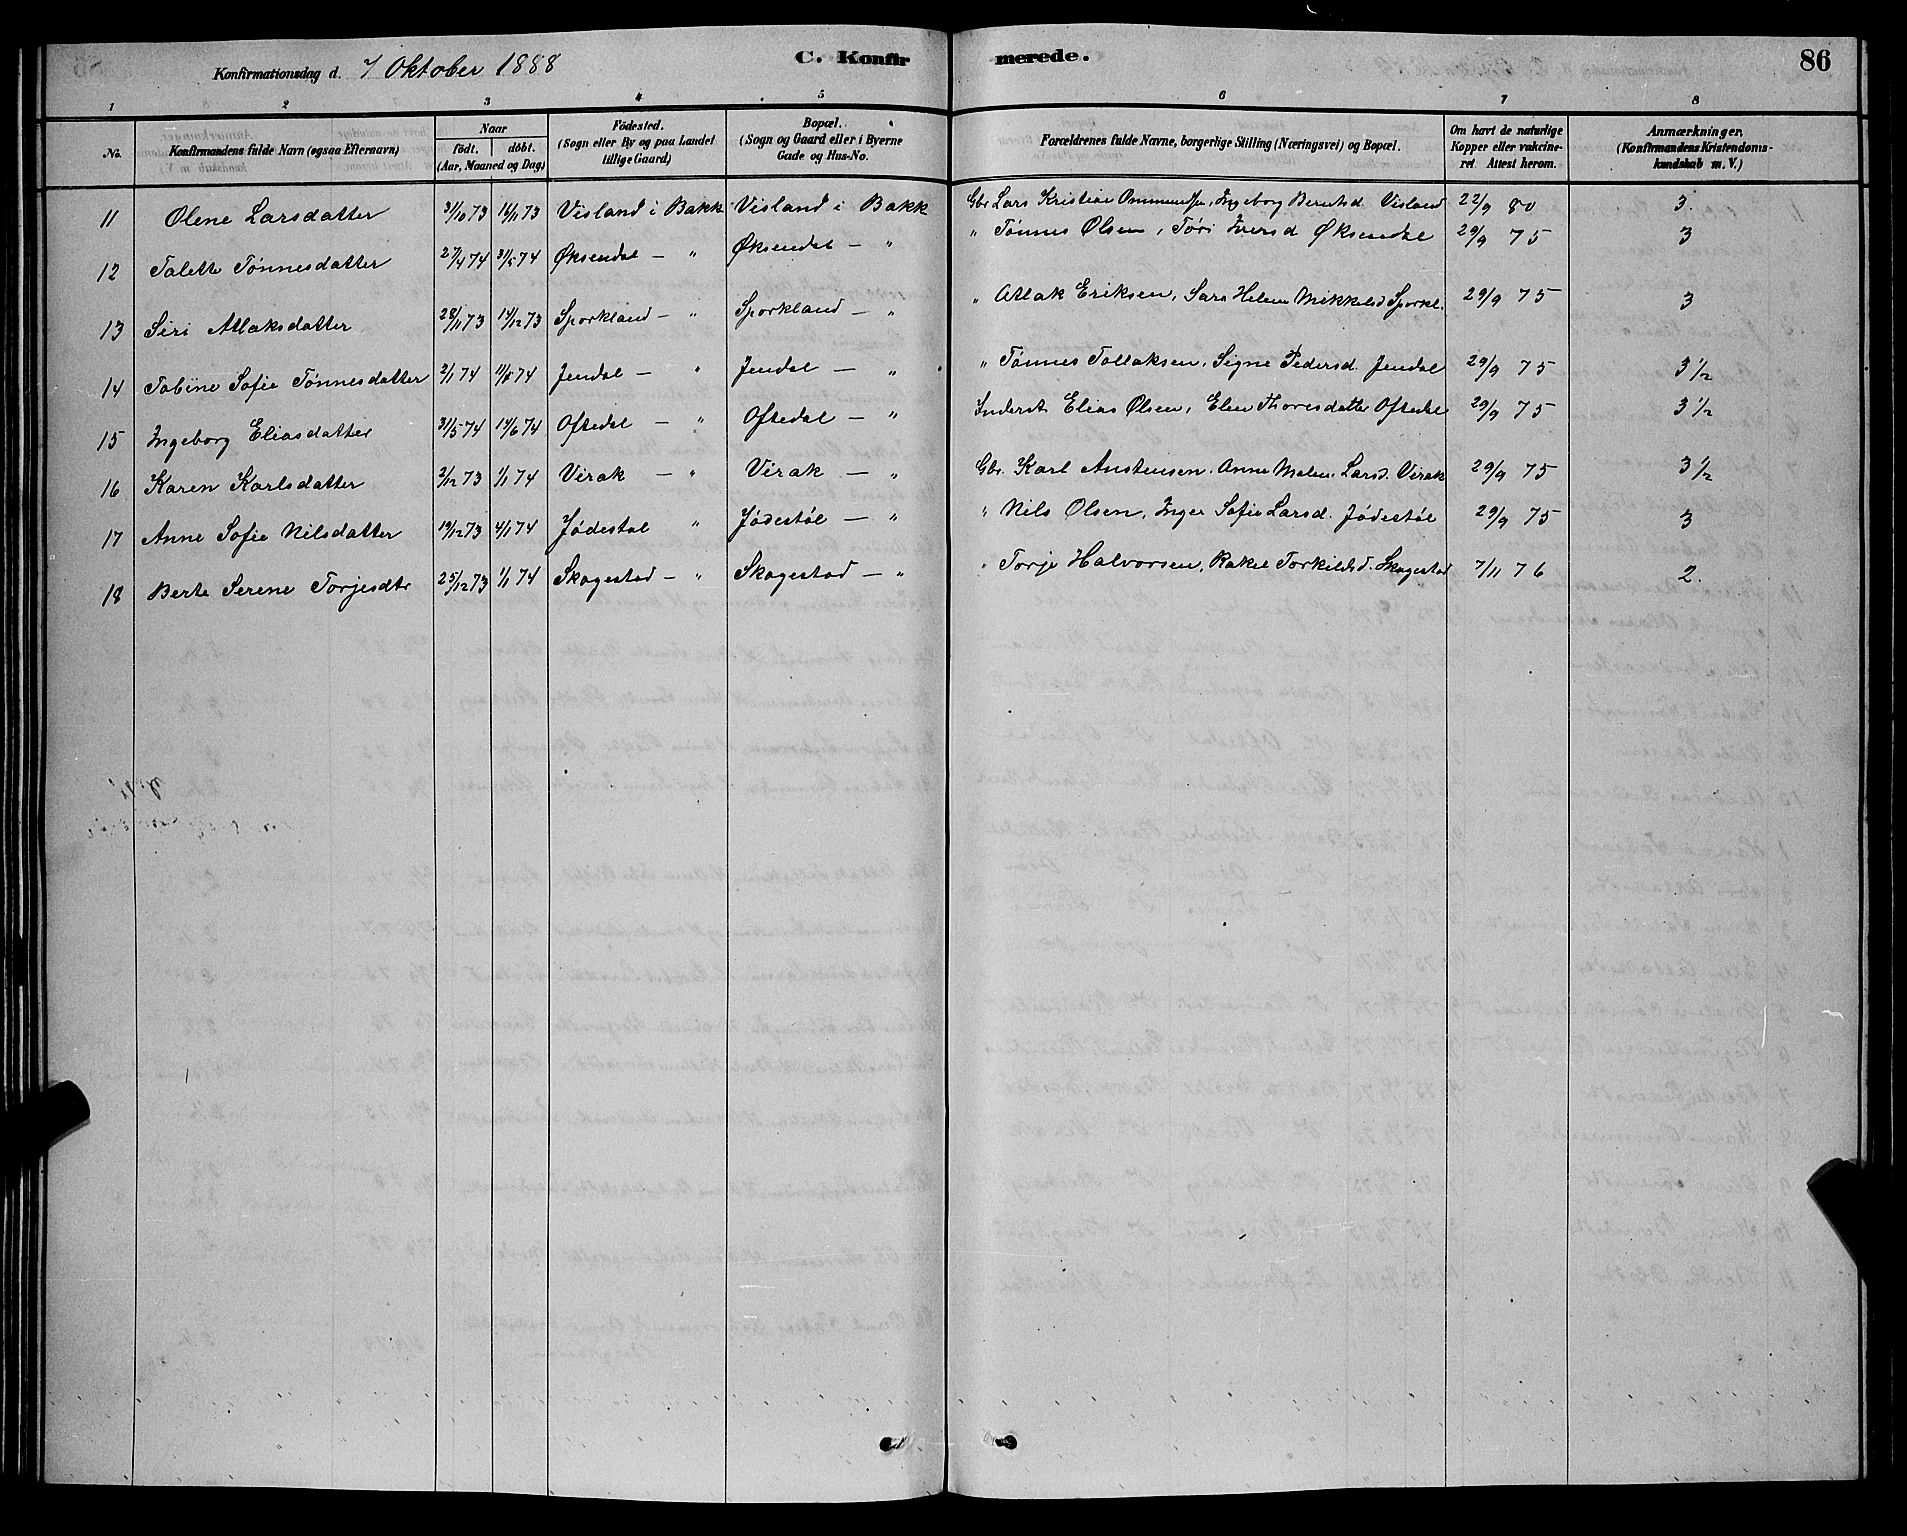 Konfirmationsdag d. 7 Oktober 1888
C. Konfir
merede.
86
1 2 3 4 5 6 7 8
No.
Konfirmandens fulde Navn (ogsaa Efternavn)
Naar
födt. döbt.
(Aar, Maaned og Dag)
Födested.
(Sogn eller By og paa Landet
tillige Gaard)
Bopæl.
(Sogn og Gaard eller i Byerne
Gade og Hus-No.
Forældrenes fulde Navne, borgerlige Stilling (Næringsvei) og Bopæl.
Om havt de naturlige
Kopper eller vakcine-
ret. Attest herom.
Anmærkninger.
(Konfirmandens Kristendoms-
kundskab m. V.)
11 Olene Larsdatter 31/10 73 16/11 73 Visland i Bakk Visland i Bakk Gbr. Lars Kristian Ommundsen, Ingeborg Berntsd. Visland 22/9 80 3.
12 Talette Tönnesdatter 27/4 74 31/5 74 Øksendal — " Øksendal — " " Tönnes Olsen, Töri Iversd Øksendal 29/9 75 3
13 Siri Atlaksdatter 28/11 73 14/12 73 Sporkland — " Sporkland — " " Atlak Eriksen, Sara Helene Mikkelsd Sporkl. 29/9 75 3
14 Tobine Sofie Tönnesdatter 2/1 74 11/1 74 Jendal — " Jendal — " " Tönnes Tollaksen, Signe Pedersd. Jendal 29/9 75 3 1/2
15 Ingeborg Eliasdatter 31/5 74 14/6 74 Oftedal — " Oftedal — " Inderst. Elias Olsen, Elen Thoresdatter Oftedal 29/9 75 3 1/2
16 Karen Karlsdatter 2/12 73 1/1 74 Virak — " Virak — " Gbr. Karl Anstensen. Anne Malene Larsd. Virak 29/9 75 3 1/2
17 Anne Sofie Nilsdatter 19/12 73 4/1 74 Jödestöl " Jödestöl — " " Nils Olsen, Inger Sofie Larsd. Jödestöl 29/9 75 3
18 Berte Serene Torjesdtr 25/12 73 1/1 74 Skogestad — " Skogestad — " " Torje Halvorsen, Rakel Torkildsd. Skogestad 7/11 76 2.